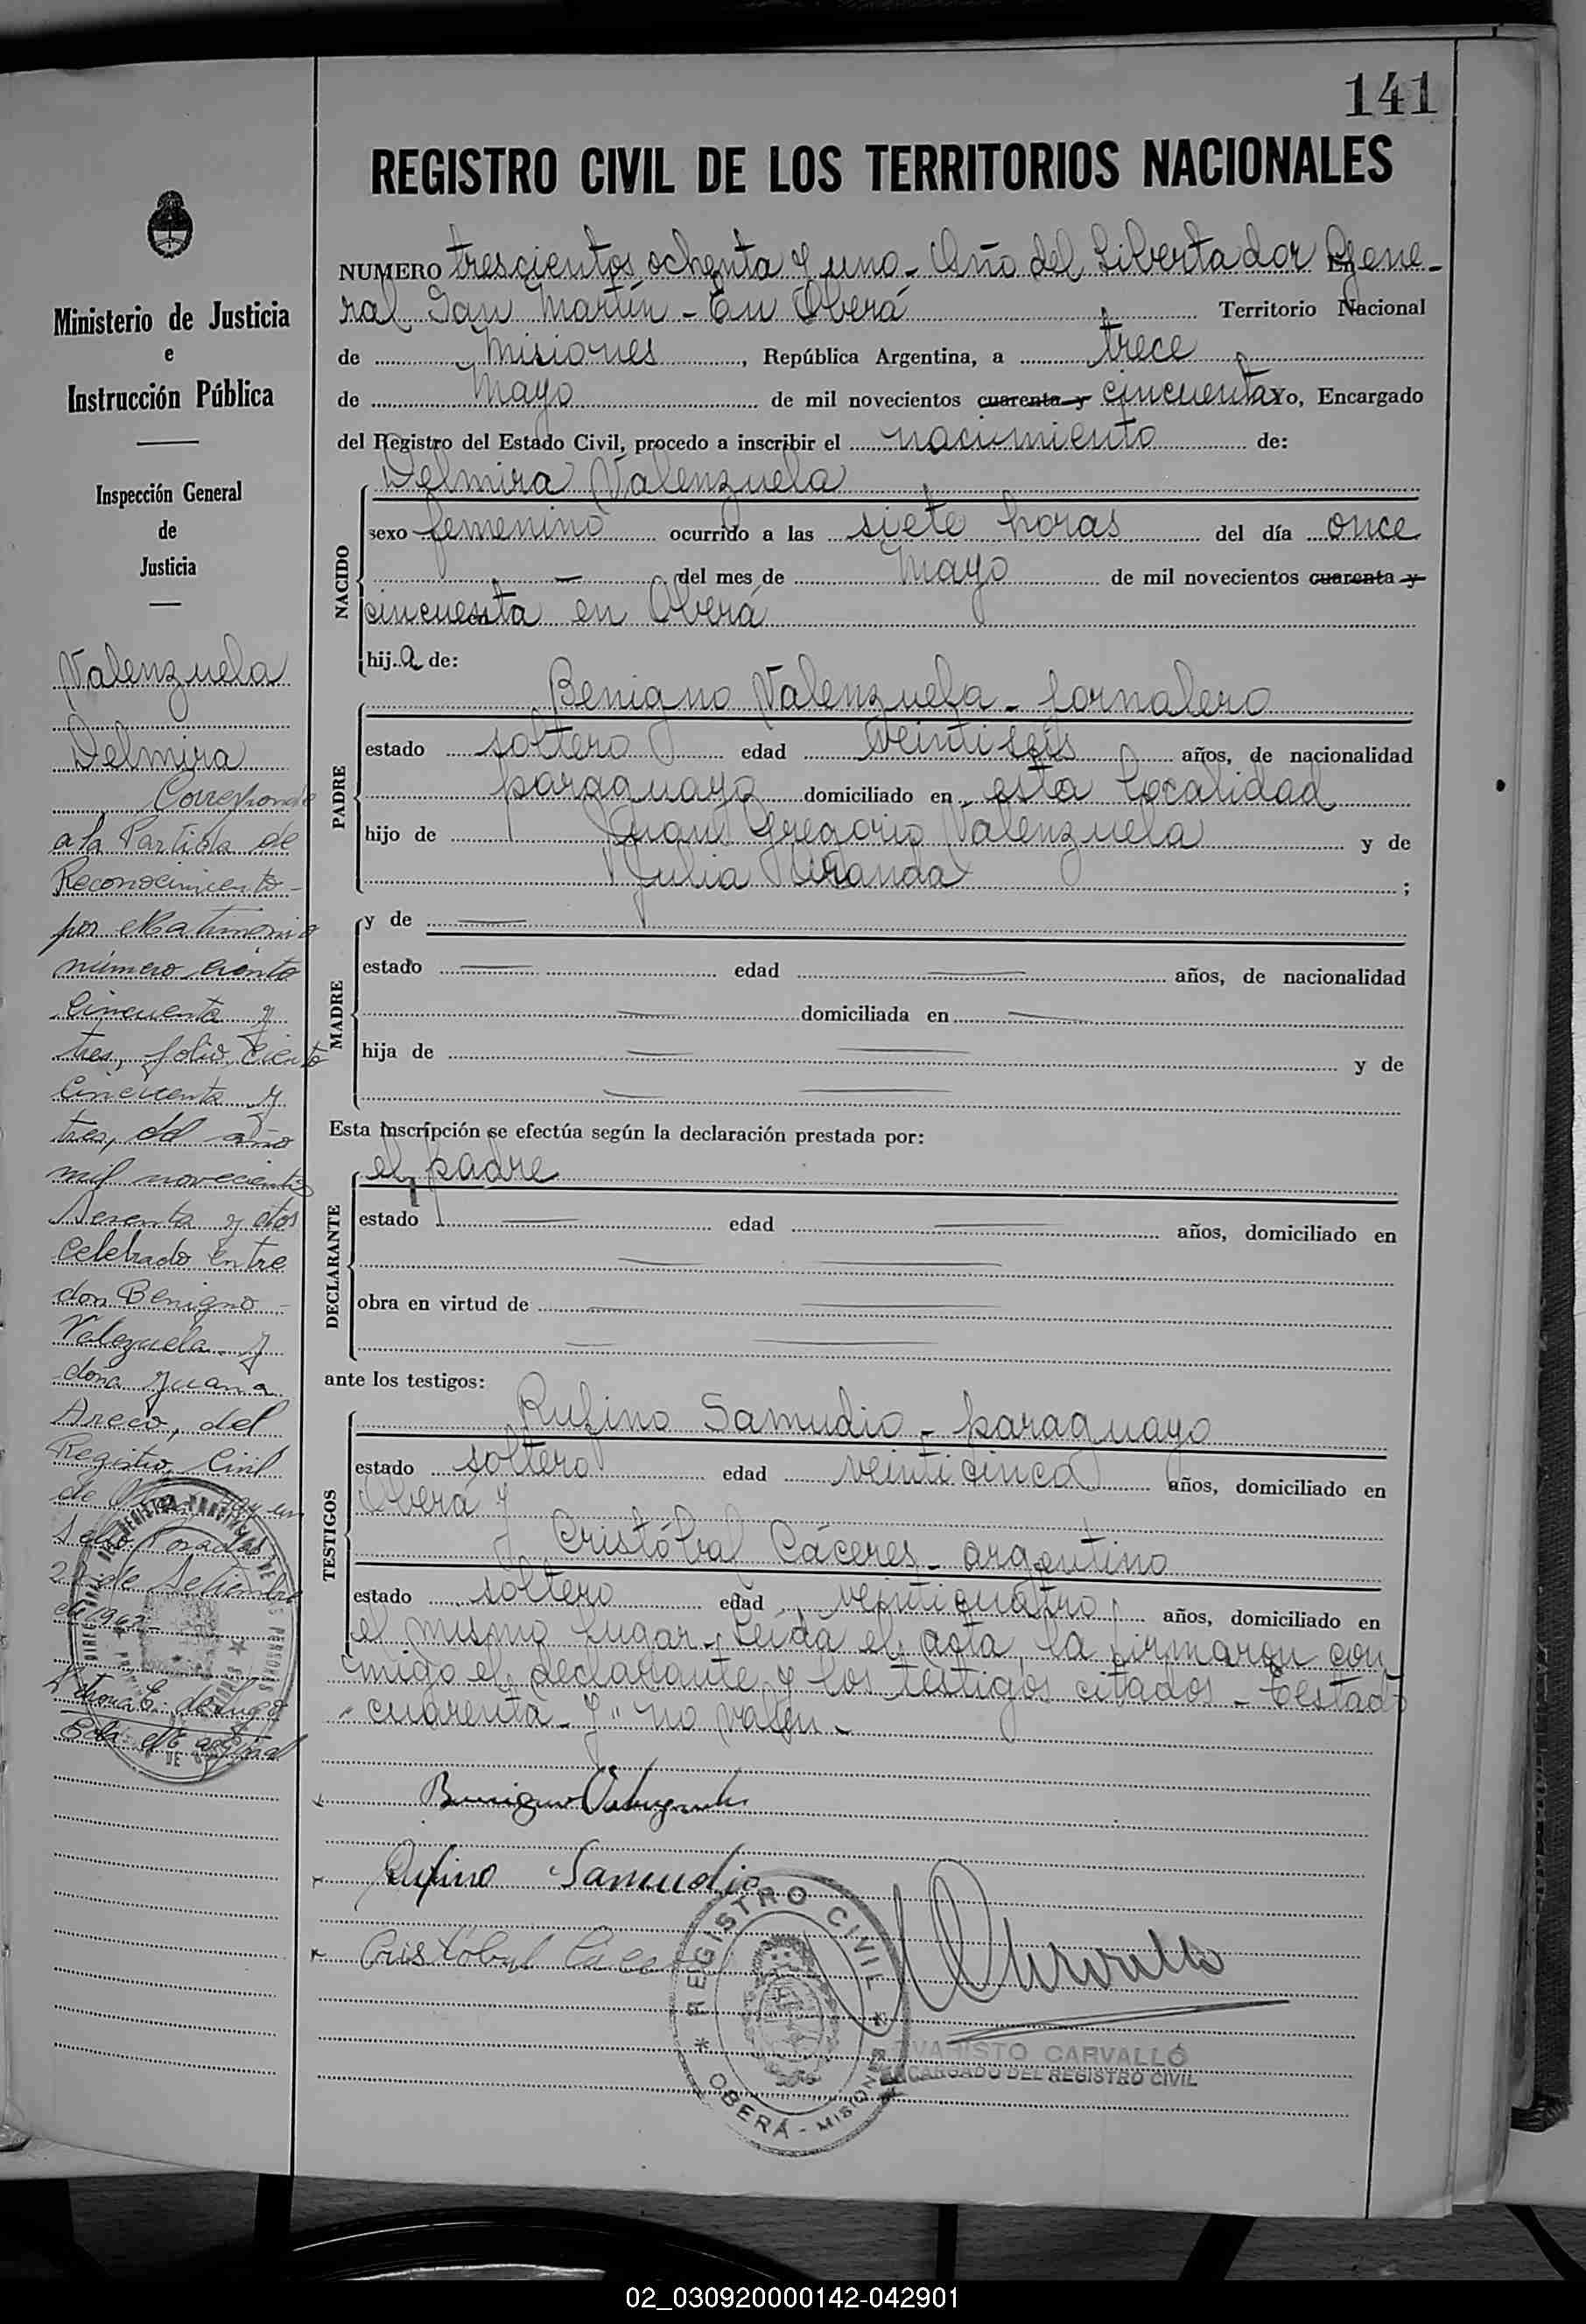 141
REGISTRO CIVIL DE LOS TERRITORIOS NACIONALES
NUMERO trescientos ochenta y uno - Año del Libertador Gene-
ral San Martín - En Oberá Territorio Nacional
de Misiones, República Argentina, a trece
de Mayo de mil novecientos cuarenta y cincuenta Yo, Encargado
del Registro del Estado Civil, procedo a inscribir el nacimiento de:
NACIDO
Delmira Valenzuela
sexo femenino ocurrido a las siete horas del día once
— del mes de Mayo de mil novecientos cuarenta y
cincuenta en Oberá
hij.a de:
PADRE
Benigno Valenzuela - jornalero
estado soltero edad veintiseis años, de nacionalidad
paraguayo domiciliado en esta localidad
hijo de Juan Gregorio Valenzuela y de
Julia Miranda ;
MADRE
y de —
estado — edad — años, de nacionalidad
— domiciliada en —
hija de — — y de
— —
Esta inscripción se efectúa según la declaración prestada por:
DECLARANTE
el padre
estado — edad — años, domiciliado en
— —
obra en virtud de — —
— —
ante los testigos:
TESTIGOS
Rufino Samudio - paraguayo
estado soltero edad veinticinco años, domiciliado en
Oberá y
Cristóbal Cáceres - argentino
estado soltero edad veinticuatro años, domiciliado en
el mismo lugar - Leída el acta, la firmaron con
migo el declarante y los testigos citados - Testado
"cuarenta - y" no valen -
Benigno Valenzuela
Rufino Samudio
Cristobal Cacer
REGISTRO CIVIL
OBERÁ - MISIONES
Carvallo
EVARISTO CARVALLO
ENCARGADO DEL REGISTRO CIVIL
Ministerio de Justicia
e
Instrucción Pública
Inspección General
de
Justicia
Valenzuela
Delmira
Corresponde
a la Partida de
Reconocimiento -
por Matrimonio
número ciento
Cincuenta y
tres, folio Ciento
Cincuenta y
tres, del año
mil novecientos
Sesenta y dos
celebrado entre
don Benigno -
Valezuela y
doña Juana
Areco, del
Registro Civil
de
Sello Posadas
22 de Setiembre
de 1962
02_030920000142-042901